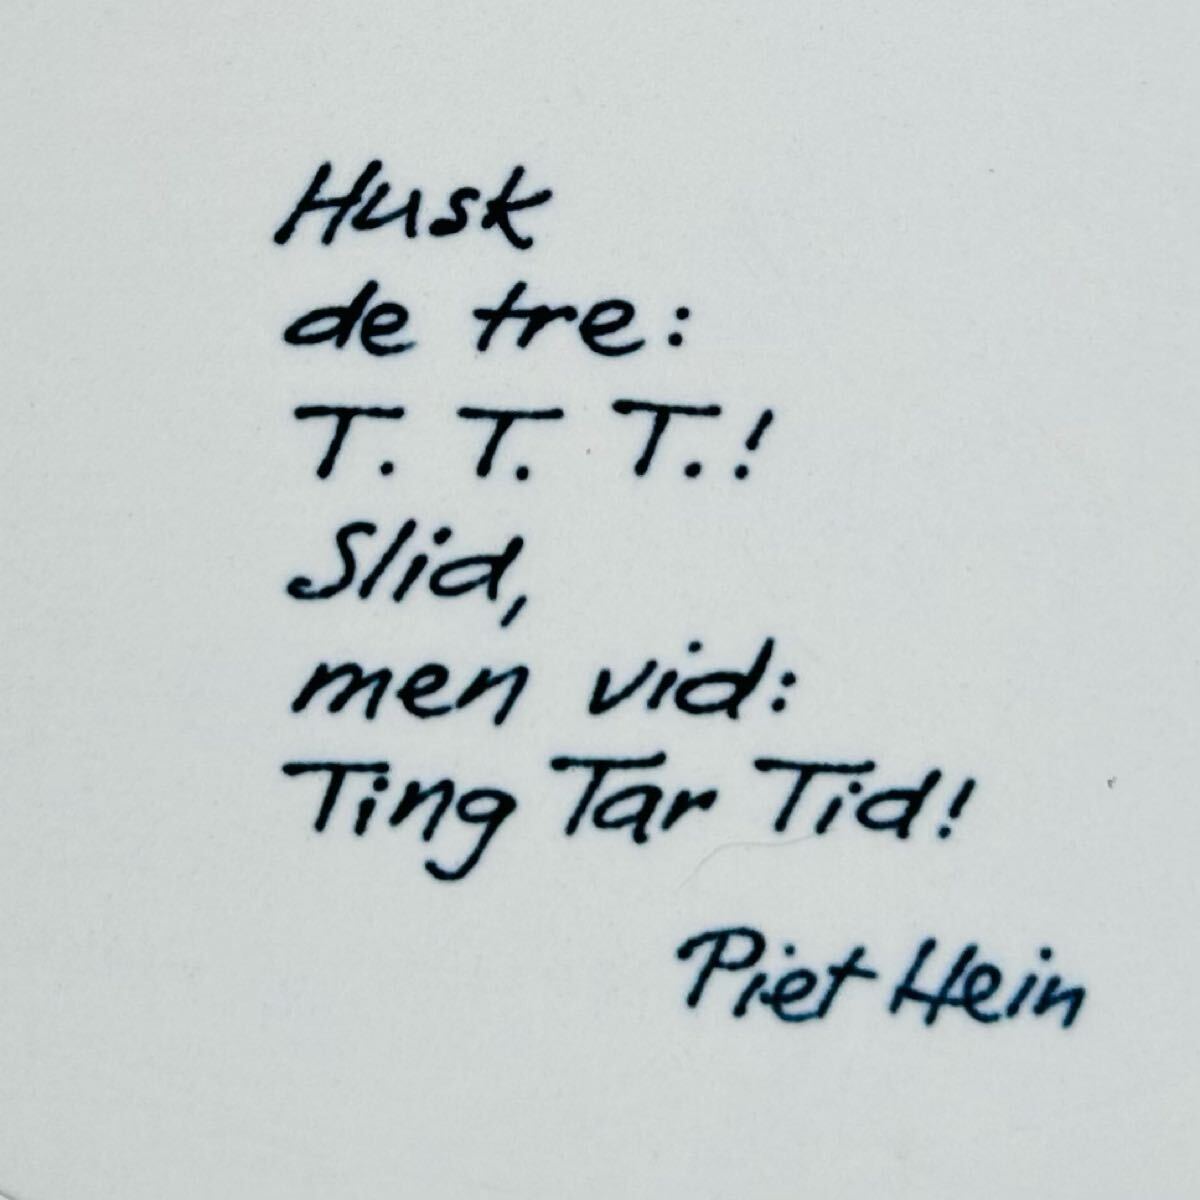 Husk
de tre:
T. T. T.!
Slid,
men vid:
Ting Tar Tid!
Piet Hein